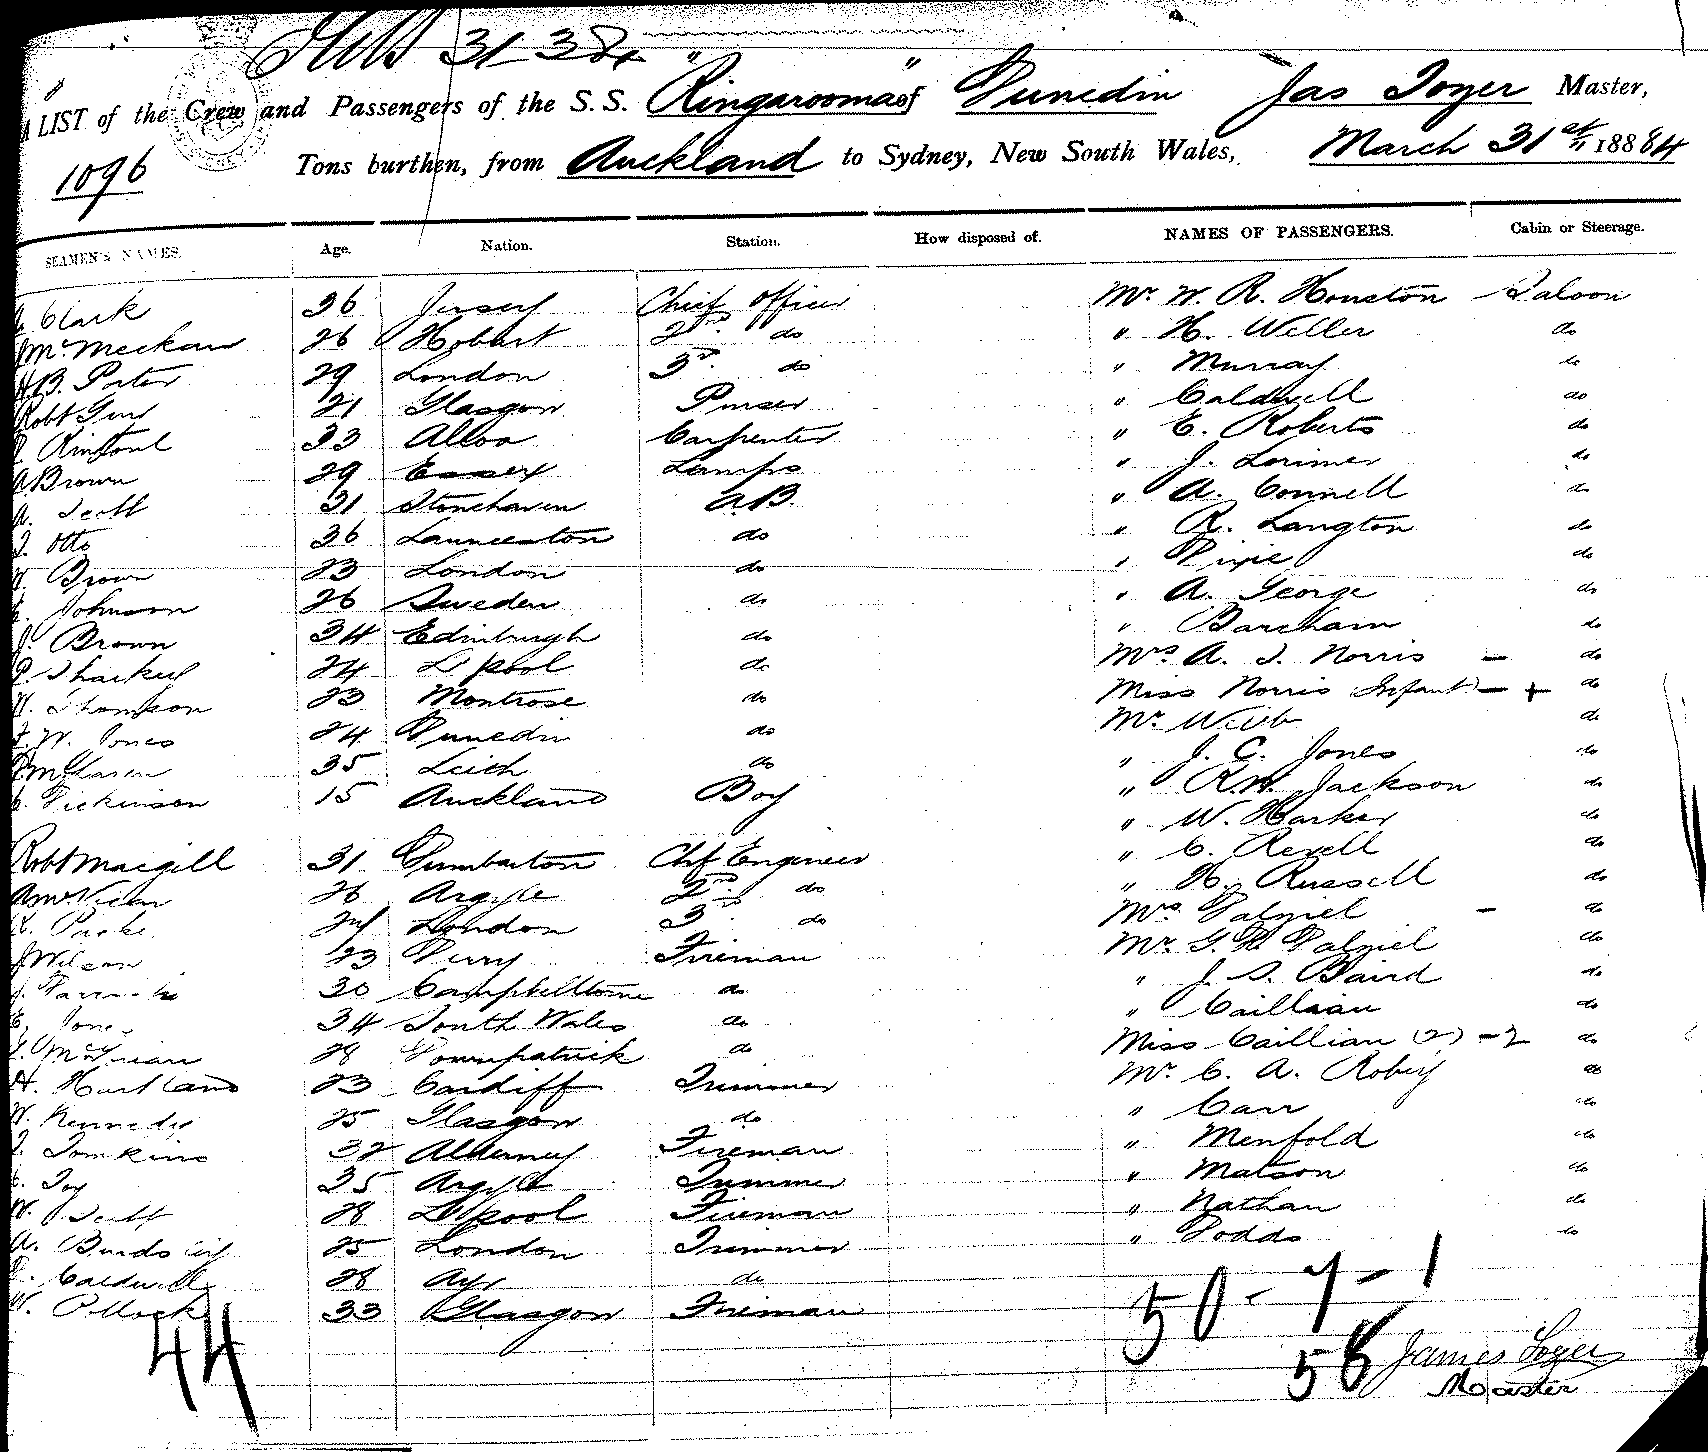 31 3 84
A LIST of the Crew and Passengers of the S. S. "Ringarooma" of Dunedin Jas Toyer Master,
1096 Tons burthen, from Auckland to Sydney, New South Wales, March 31st 1884
SEAMEN'S NAMES. Age. Nation. Station. How disposed of. NAMES OF PASSENGERS. Cabin or Steerage.
Clark 36 Jersey Chief Officer Mr. W. R. Houston Saloon
McMeckan 26 Hobart 2nd. do " H. Weller do
H B. Porter 29 London 3rd. do " Murray do
Robt 21 Glasgow Purser " Caldwell do
Rintoul 33 Alloa Carpenter " E. Roberts do
A Brown 29 Essex Lamps " J. Lorimer do
A. Scott 31 Stonehaven AB. " A. Connell do
Otto 36 Launceston do " R. Langton do
Brown 23 London do " Pixie do
Johnson 26 Sweden do " A. George do
J. Brown 34 Edinburgh do " Barcham do
P. Sharkey 24 L'pool do Mrs A. J. Norris — do
Thomson 23 Montrose do Miss Norris Infant — + do
W. Jones 24 Dunedin do Mr. Webb do
McLaren 35 Leith do " J. C. Jones do
Dickinson 15 Auckland Boy " R. W. Jackson do
" W. Harker do
Robt Macgill 31 Dumbarton Chf Engineer " C. Revell do
A McVicar 26 Argyle 2nd. do " H. Russell do
24 London 3rd. do Mrs. Dalziel - do
J Wilson 23 Derry Fireman Mr. G. H. Dalziel do
J. 30 Campbelltown do " J. S. Baird do
Jones 34 South Wales do " Cailliau do
28 Downpatrick do Miss Cailliau (2) - 2 do
H. Hartland 23 Cardiff Trimmer Mr. C. A. Robey do
W. Kennedy 25 Glasgow do " Carr do
Tomkins 32 Alderney Fireman " Menfold do
Toy 25 Argyle Trimmer " Matson do
W. Scott 28 L'pool Fireman " Nathan do
A. Burdsley 25 London Trimmer " Dodds do
Caldwell 28 Ayr do
W. Pollock 33 Glasgow Fireman
50 - 7 - 1
44
58 James Toyer
Master